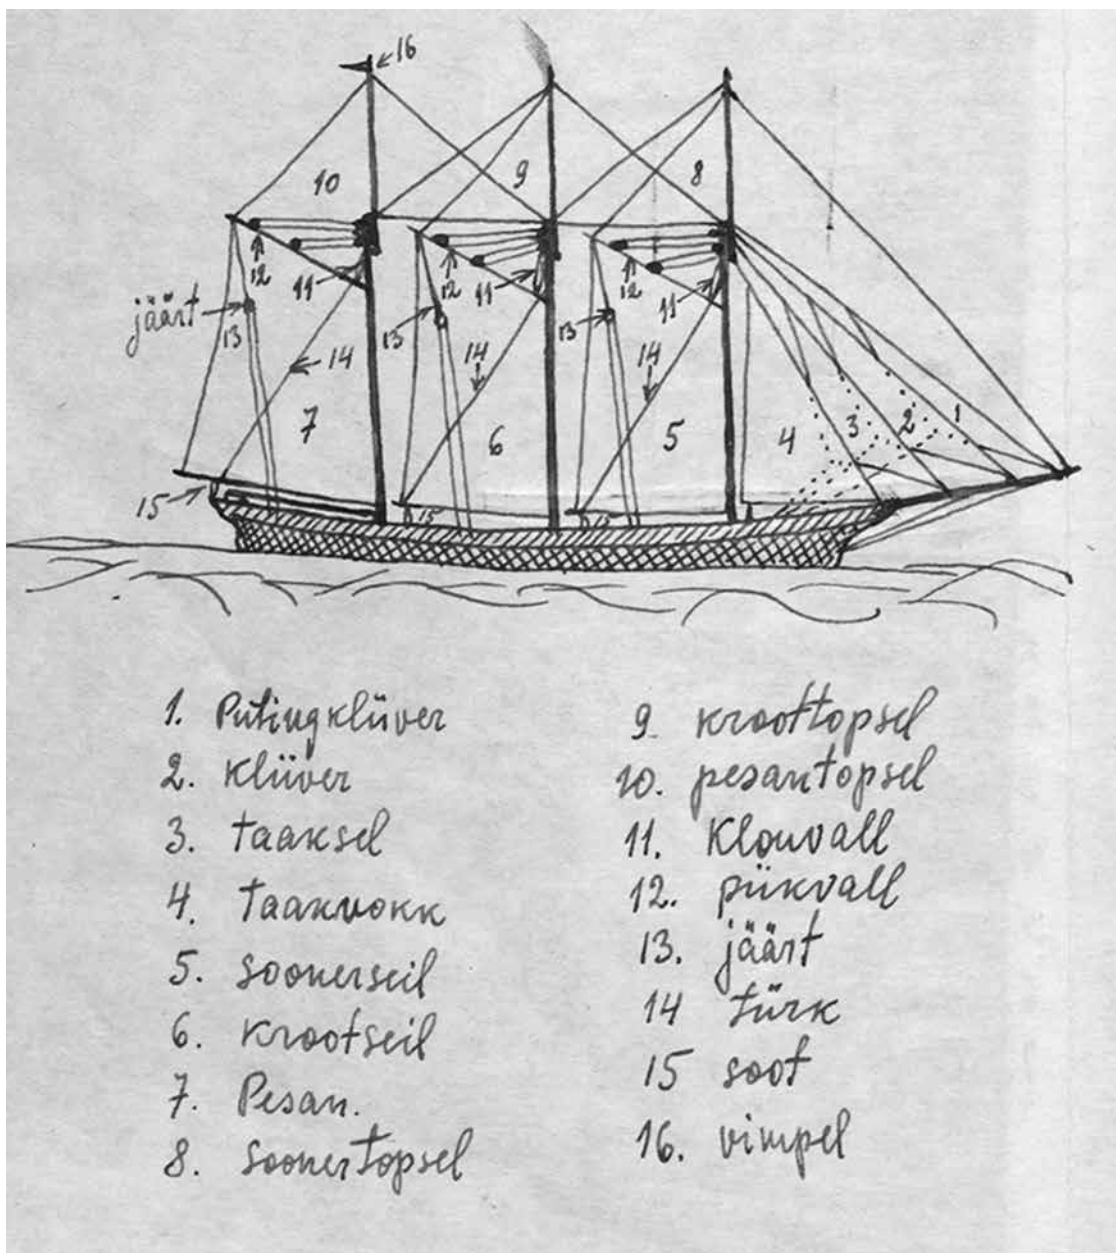 16
10
9
8
12
11
12
11
12
11
jäärt
13
14
13
14
13
14
7
6
5
4
3
2
1
15
15
15
1. Putingklüver
2. klüver
3. taaksel
4. taakvokk
5. soonerseil
6. krootseil
7. Pesan.
8. soonertopsel
9. kroottopsel
10. pesantopsel
11. Klouvall
12. piikvall
13. jäärt
14 türk
15 soot
16. vimpel